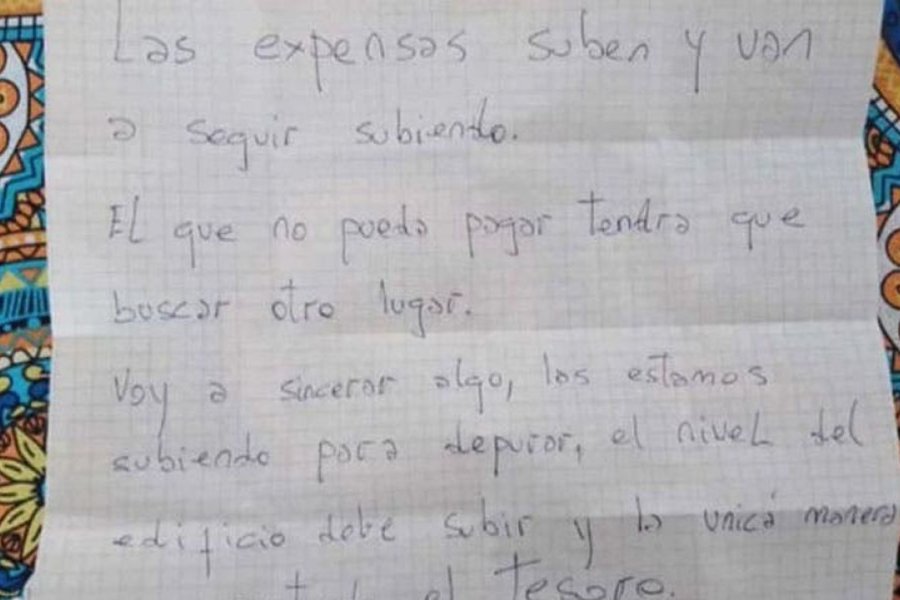 Las expensas suben y van
a seguir subiendo.
EL que no pueda pagar tendra que
buscar otro lugar.
Voy a sincerar algo, las estamos
subiendo para depurar, el niveL del
edificio debe subir y la unica manera
el Tesoro.